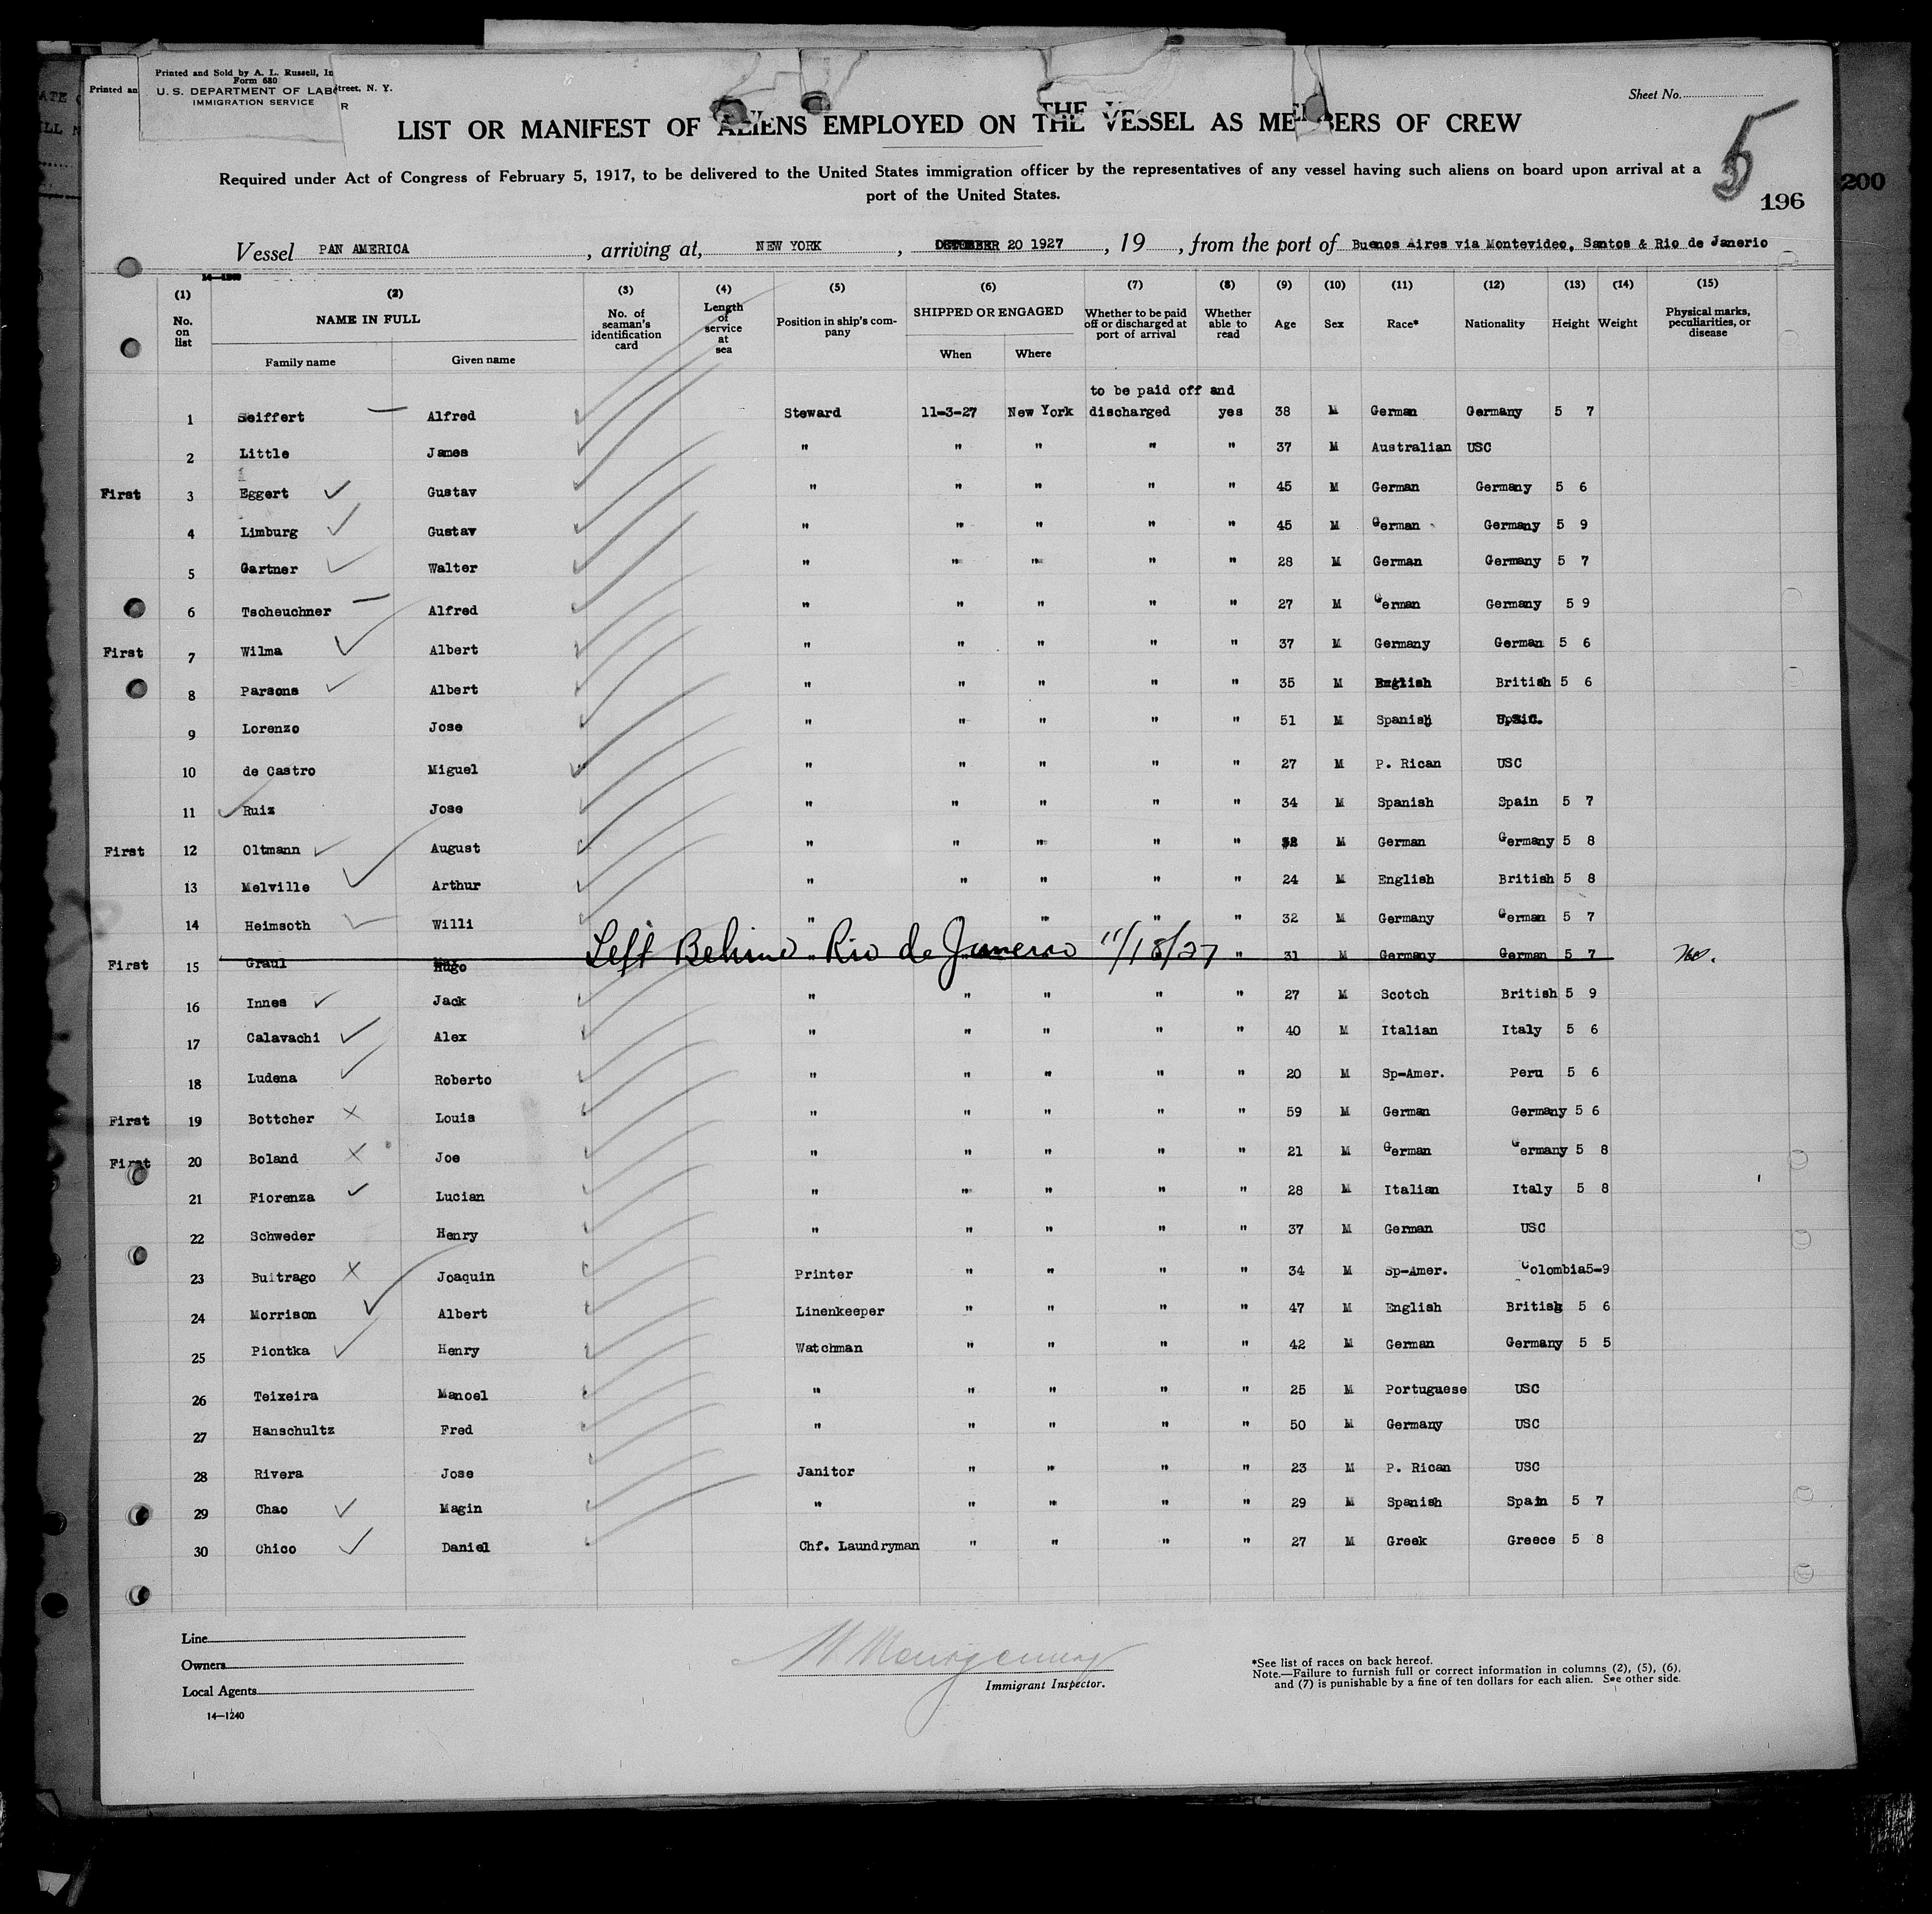 Printed and Sold by A. L. Russell, In
Form 680
U. S. DEPARTMENT OF LAB
IMMIGRATION SERVICE
Printed an
Street, N. Y.
R
Sheet No.
5
196
200
LIST OR MANIFEST OF ALIENS EMPLOYED ON THE VESSEL AS MEMBERS OF CREW
Required under Act of Congress of February 5, 1917, to be delivered to the United States immigration officer by the representatives of any vessel having such aliens on board upon arrival at a
port of the United States.
Vessel PAN AMERICA, arriving at, NEW YORK, 20 1927, 19, from the port of Buenos Aires via Montevideo, Santos & Rio de Janerio
(1) No. on list
(2) NAME IN FULL Family name Given name
(3) No. of seaman's identification card
(4) Length of service at sea
(5) Position in ship's company
(6) SHIPPED OR ENGAGED When Where
(7) Whether to be paid off or discharged at port of arrival
(8) Whether able to read
(9) Age
(10) Sex
(11) Race*
(12) Nationality
(13) Height
(14) Weight
(15) Physical marks, peculiarities, or disease
to be paid off and
1 Seiffert Alfred Steward 11-3-27 New York discharged yes 38 M German Germany 5 7
2 Little James " " " " " 37 M Australian USC
First 3 Eggert Gustav " " " " " 45 M German Germany 5 6
4 Limburg Gustav " " " " " 45 M German Germany 5 9
5 Gartner Walter " " " " " 28 M German Germany 5 7
6 Tscheuchner Alfred " " " " " 27 M German Germany 5 9
First 7 Wilma Albert " " " " " 37 M Germany German 5 6
8 Parsons Albert " " " " " 35 M English British 5 6
9 Lorenzo Jose " " " " " 51 M Spanish
10 de Castro Miguel " " " " " 27 M P. Rican USC
11 Ruiz Jose " " " " " 34 M Spanish Spain 5 7
First 12 Oltmann August " " " " " M German Germany 5 8
13 Melville Arthur " " " " " 24 M English British 5 8
14 Heimsoth Willi " " " " 32 M Germany German 5 7
First 15 Graul Hugo Left Behind Rio de Janeiro 11/18/27 " 31 M Germany German 5 7
16 Innes Jack " " " " " 27 M Scotch British 5 9
17 Calavachi Alex " " " " " 40 M Italian Italy 5 6
18 Ludena Roberto " " " " " 20 M Sp-Amer. Peru 5 6
First 19 Bottcher Louis " " " " " 59 M German Germany 5 6
First 20 Boland Joe " " " " " 21 M German Germany 5 8
21 Fiorenza Lucian " " " " " 28 M Italian Italy 5 8
22 Schweder Henry " " " " " 37 M German USC
23 Buitrago Joaquin Printer " " " " 34 M Sp-Amer. Colombia 5-9
24 Morrison Albert Linenkeeper " " " " 47 M English British 5 6
25 Piontka Henry Watchman " " " " 42 M German Germany 5 5
26 Teixeira Manoel " " " " " 25 M Portuguese USC
27 Hanschultz Fred " " " " " 50 M Germany USC
28 Rivera Jose Janitor " " " " 23 M P. Rican USC
29 Chao Magin " " " " " 29 M Spanish Spain 5 7
30 Chico Daniel Chf. Laundryman " " " " 27 M Greek Greece 5 8
Line
Owners
Local Agents
14-1240
Immigrant Inspector.
*See list of races on back hereof.
Note.—Failure to furnish full or correct information in columns (2), (5), (6),
and (7) is punishable by a fine of ten dollars for each alien. See other side.